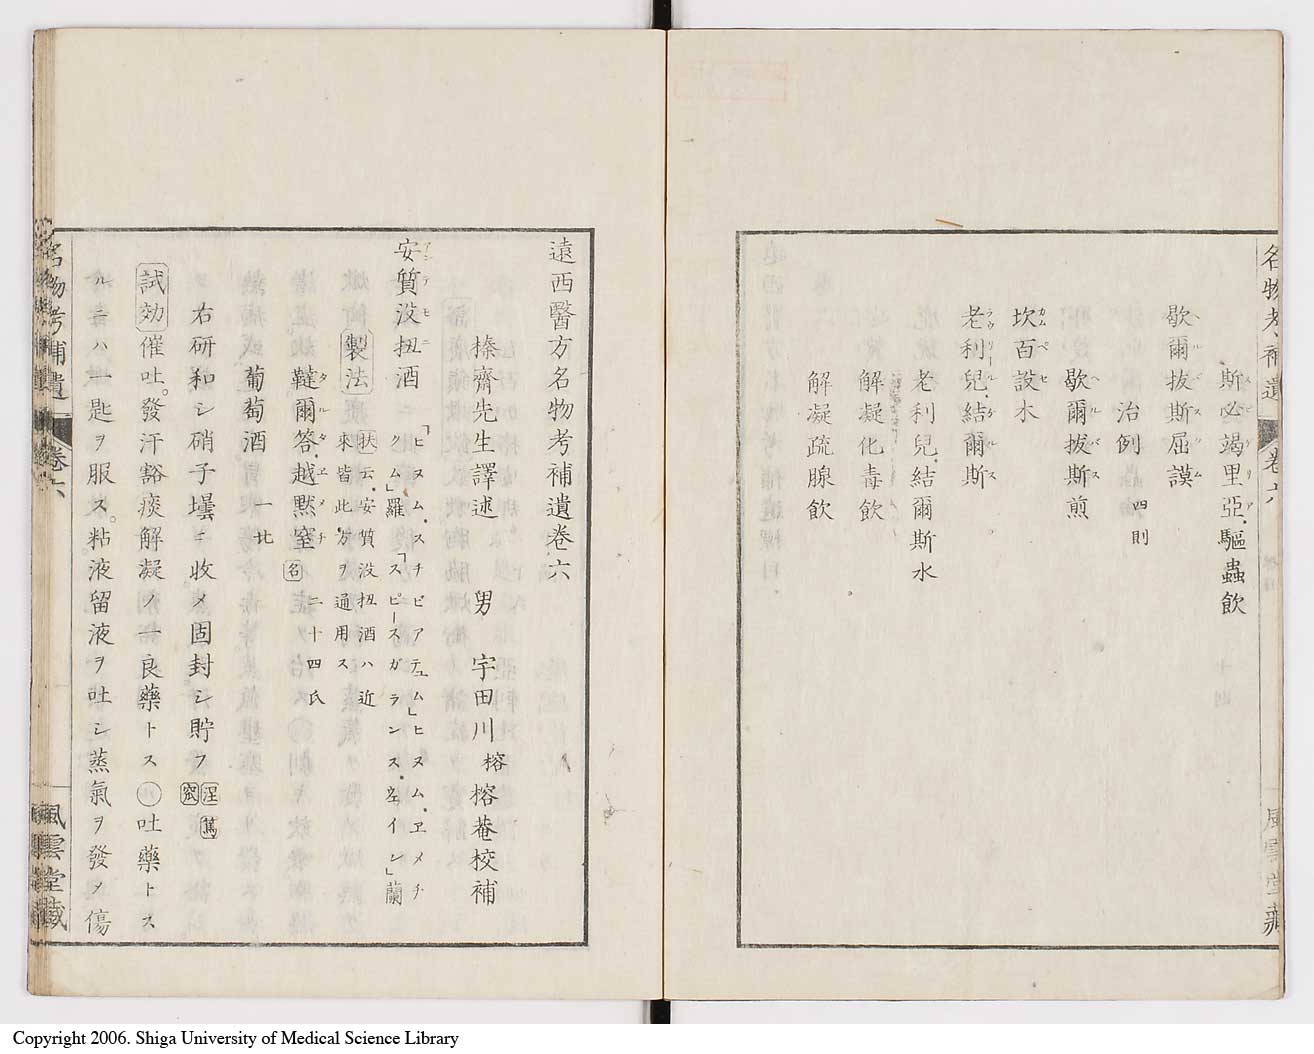 名物考補遺 卷六 風雲堂藏
斯必竭里亞驅蟲飲
歇爾拔斯屈謨
治例 四則
歇爾拔斯煎
坎百設木
老利兒結爾斯
老利兒結爾斯水
解凝化毒飲
解凝疏腺飲
遠西醫方名物考補遺卷六
榛齋先生譯述 男 宇田川 榕 榕菴校補
安質没扭酒 「ヒヌムスチビアテュム」ヒヌムヱメチ
クム」羅「スピースガランスヱイン」蘭
製法 㕀云安質没扭酒ハ近
來皆此方ヲ通用ス
韃爾答越黙窒 名 二十四氏
葡萄酒 一北
右研和シ硝子壜ニ收メ固封シ貯フ
試効 催吐。發汗豁痰解凝ノ一良藥トス○吐藥トス
ルニハ一匙ヲ服ス。粘液留液ヲ吐シ蒸氣ヲ發ノ傷
名物考補遺 卷六 風雲堂藏
Copyright 2006. Shiga University of Medical Science Library